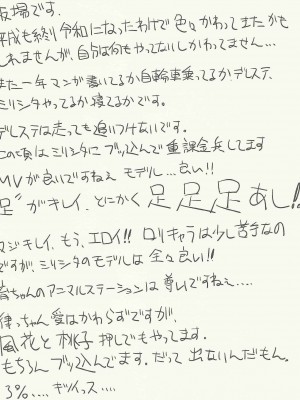 板場です。
平成も終り令和になったわけで色々かわってまたかも
しれませんが、自分は何もやってないしかわってません…
また一年マンガ書いてるか自転車乗ってるかデレステ、
ミリシタやってるか寝てるかです。
デレステは走っても追いつけないです。
この頃はミリシタにブッ込んで重課金兵してます
MVが良いですねえ モデル…良い!!
足〃がキレイ、とにかく足足足あし!!
マジキレイ、もう、エロイ!! ロリキャラは少し苦手なの
ですが、ミリシタのモデルは全々良い!!
育ちゃんのアニマルステーションは尊いですねぇ….
律っちゃん愛はかわらずですが、
風花と桃子押しでもやってます。
もちろんブッ込んでます。だって出ないんだもん。
3%.... キツイっス....